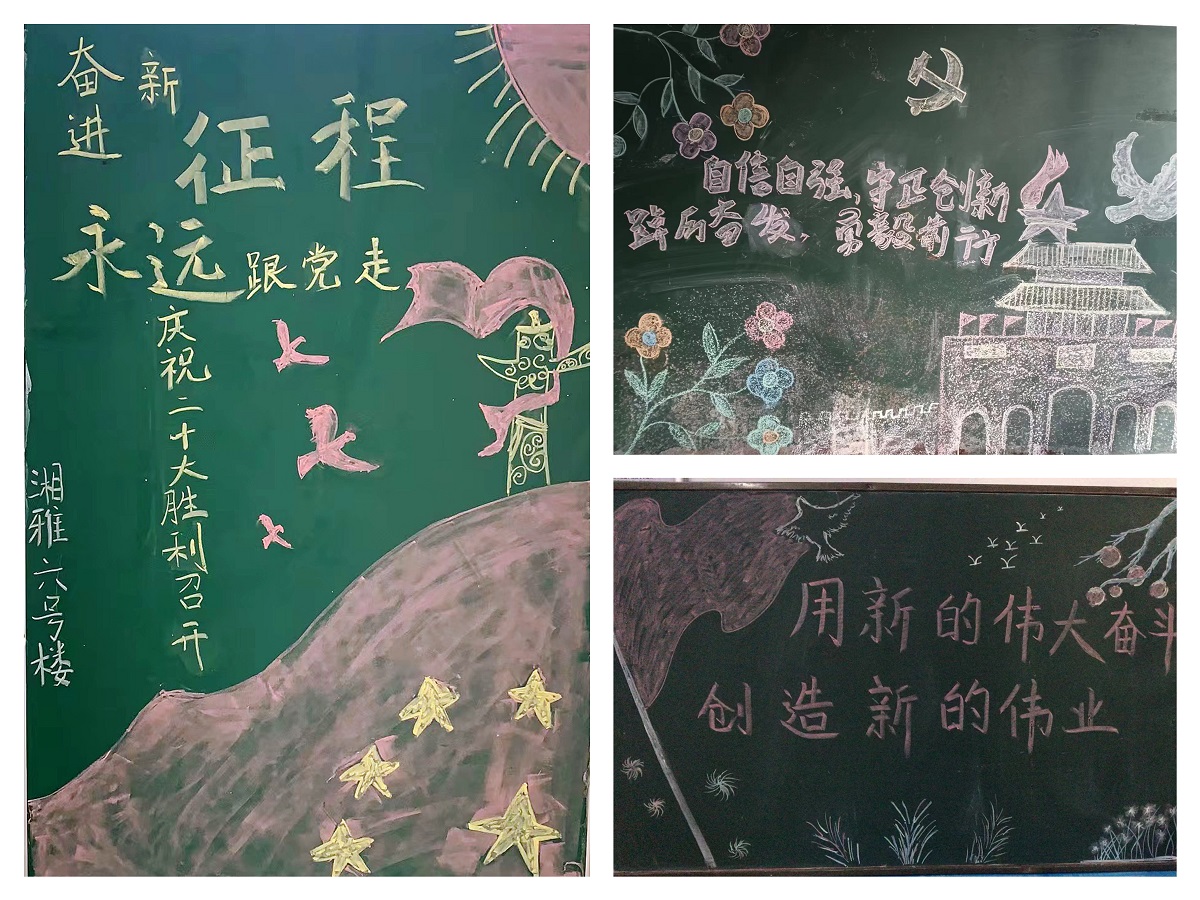 奋进新征程
永远跟党走
庆祝二十大胜利召开
湘雅六号楼
自信自强,守正创新
踔厉奋发,勇毅前行
用新的伟大奋斗
创造新的伟业